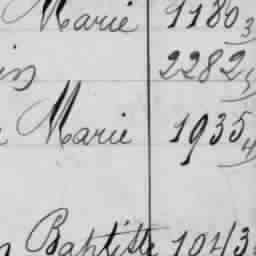 Marie 1180 3
2282 5
Marie 1935 4
Baptiste 1043